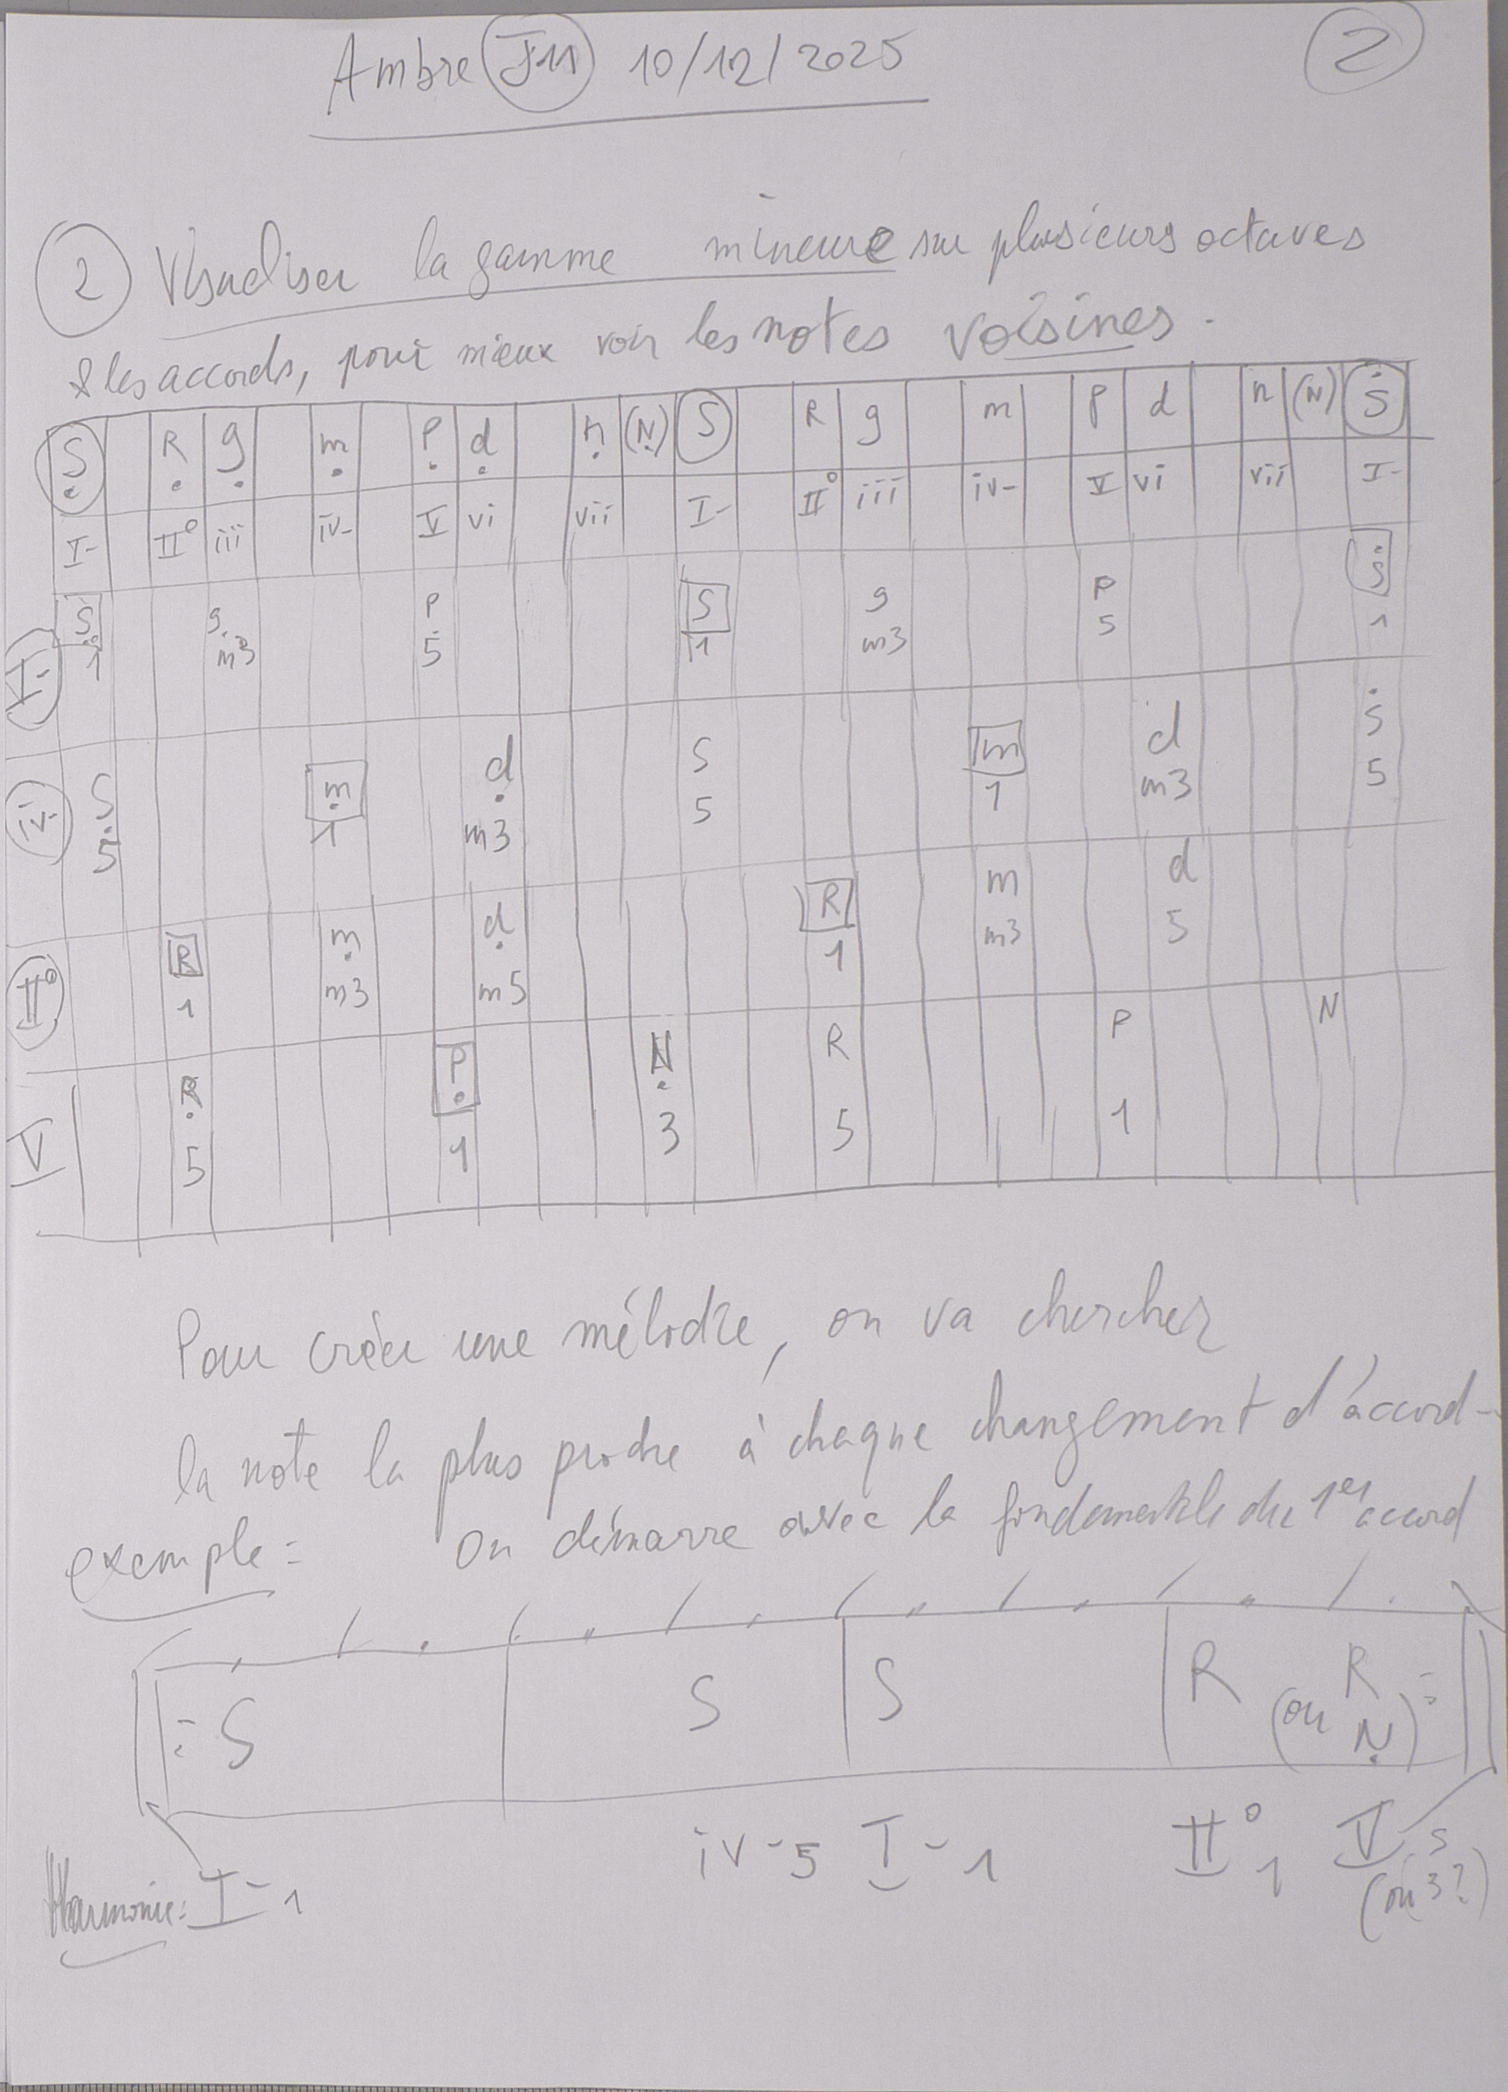 Ambre J11 10/12/2025 2
2 Visualiser la gamme mineure sur plusieurs octaves
& les accords, pour mieux voir les notes voisines.
Ṣ R̩ g̣ ṃ P̣ ḍ ṇ (Ṇ) S R g m P d n (N) Ṡ
I- II° iii iv- V vi vii I- II° iii iv- V vi vii I-
I- Ṣ g̣ P S g P Ṡ
1 m3 5 1 m3 5 1
iv- Ṣ ṃ ḍ S m d Ṡ
5 1 m3 5 1 m3 5
II° R ṃ ḍ R m d
1 m3 m5 1 m3 5
V Ṛ P̣ Ṇ R P N
5 1 3 5 1
Pour créer une mélodie, on va chercher
la note la plus proche à chaque changement d'accord-
exemple: On démarre avec la fondamentale du 1er accord
: S S S R (ou R Ṇ) :
Harmonie: I-1 iv-5 I-1 II°1 V5 (ou 3?)